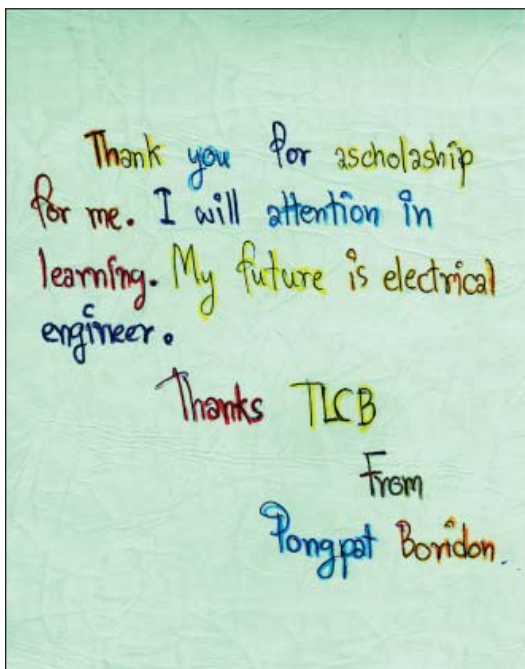 Thank you for ascholaship
for me. I will attention in
learning. My future is electrical
engineer.
Thanks TLCB
From
Pongpat Boridon.